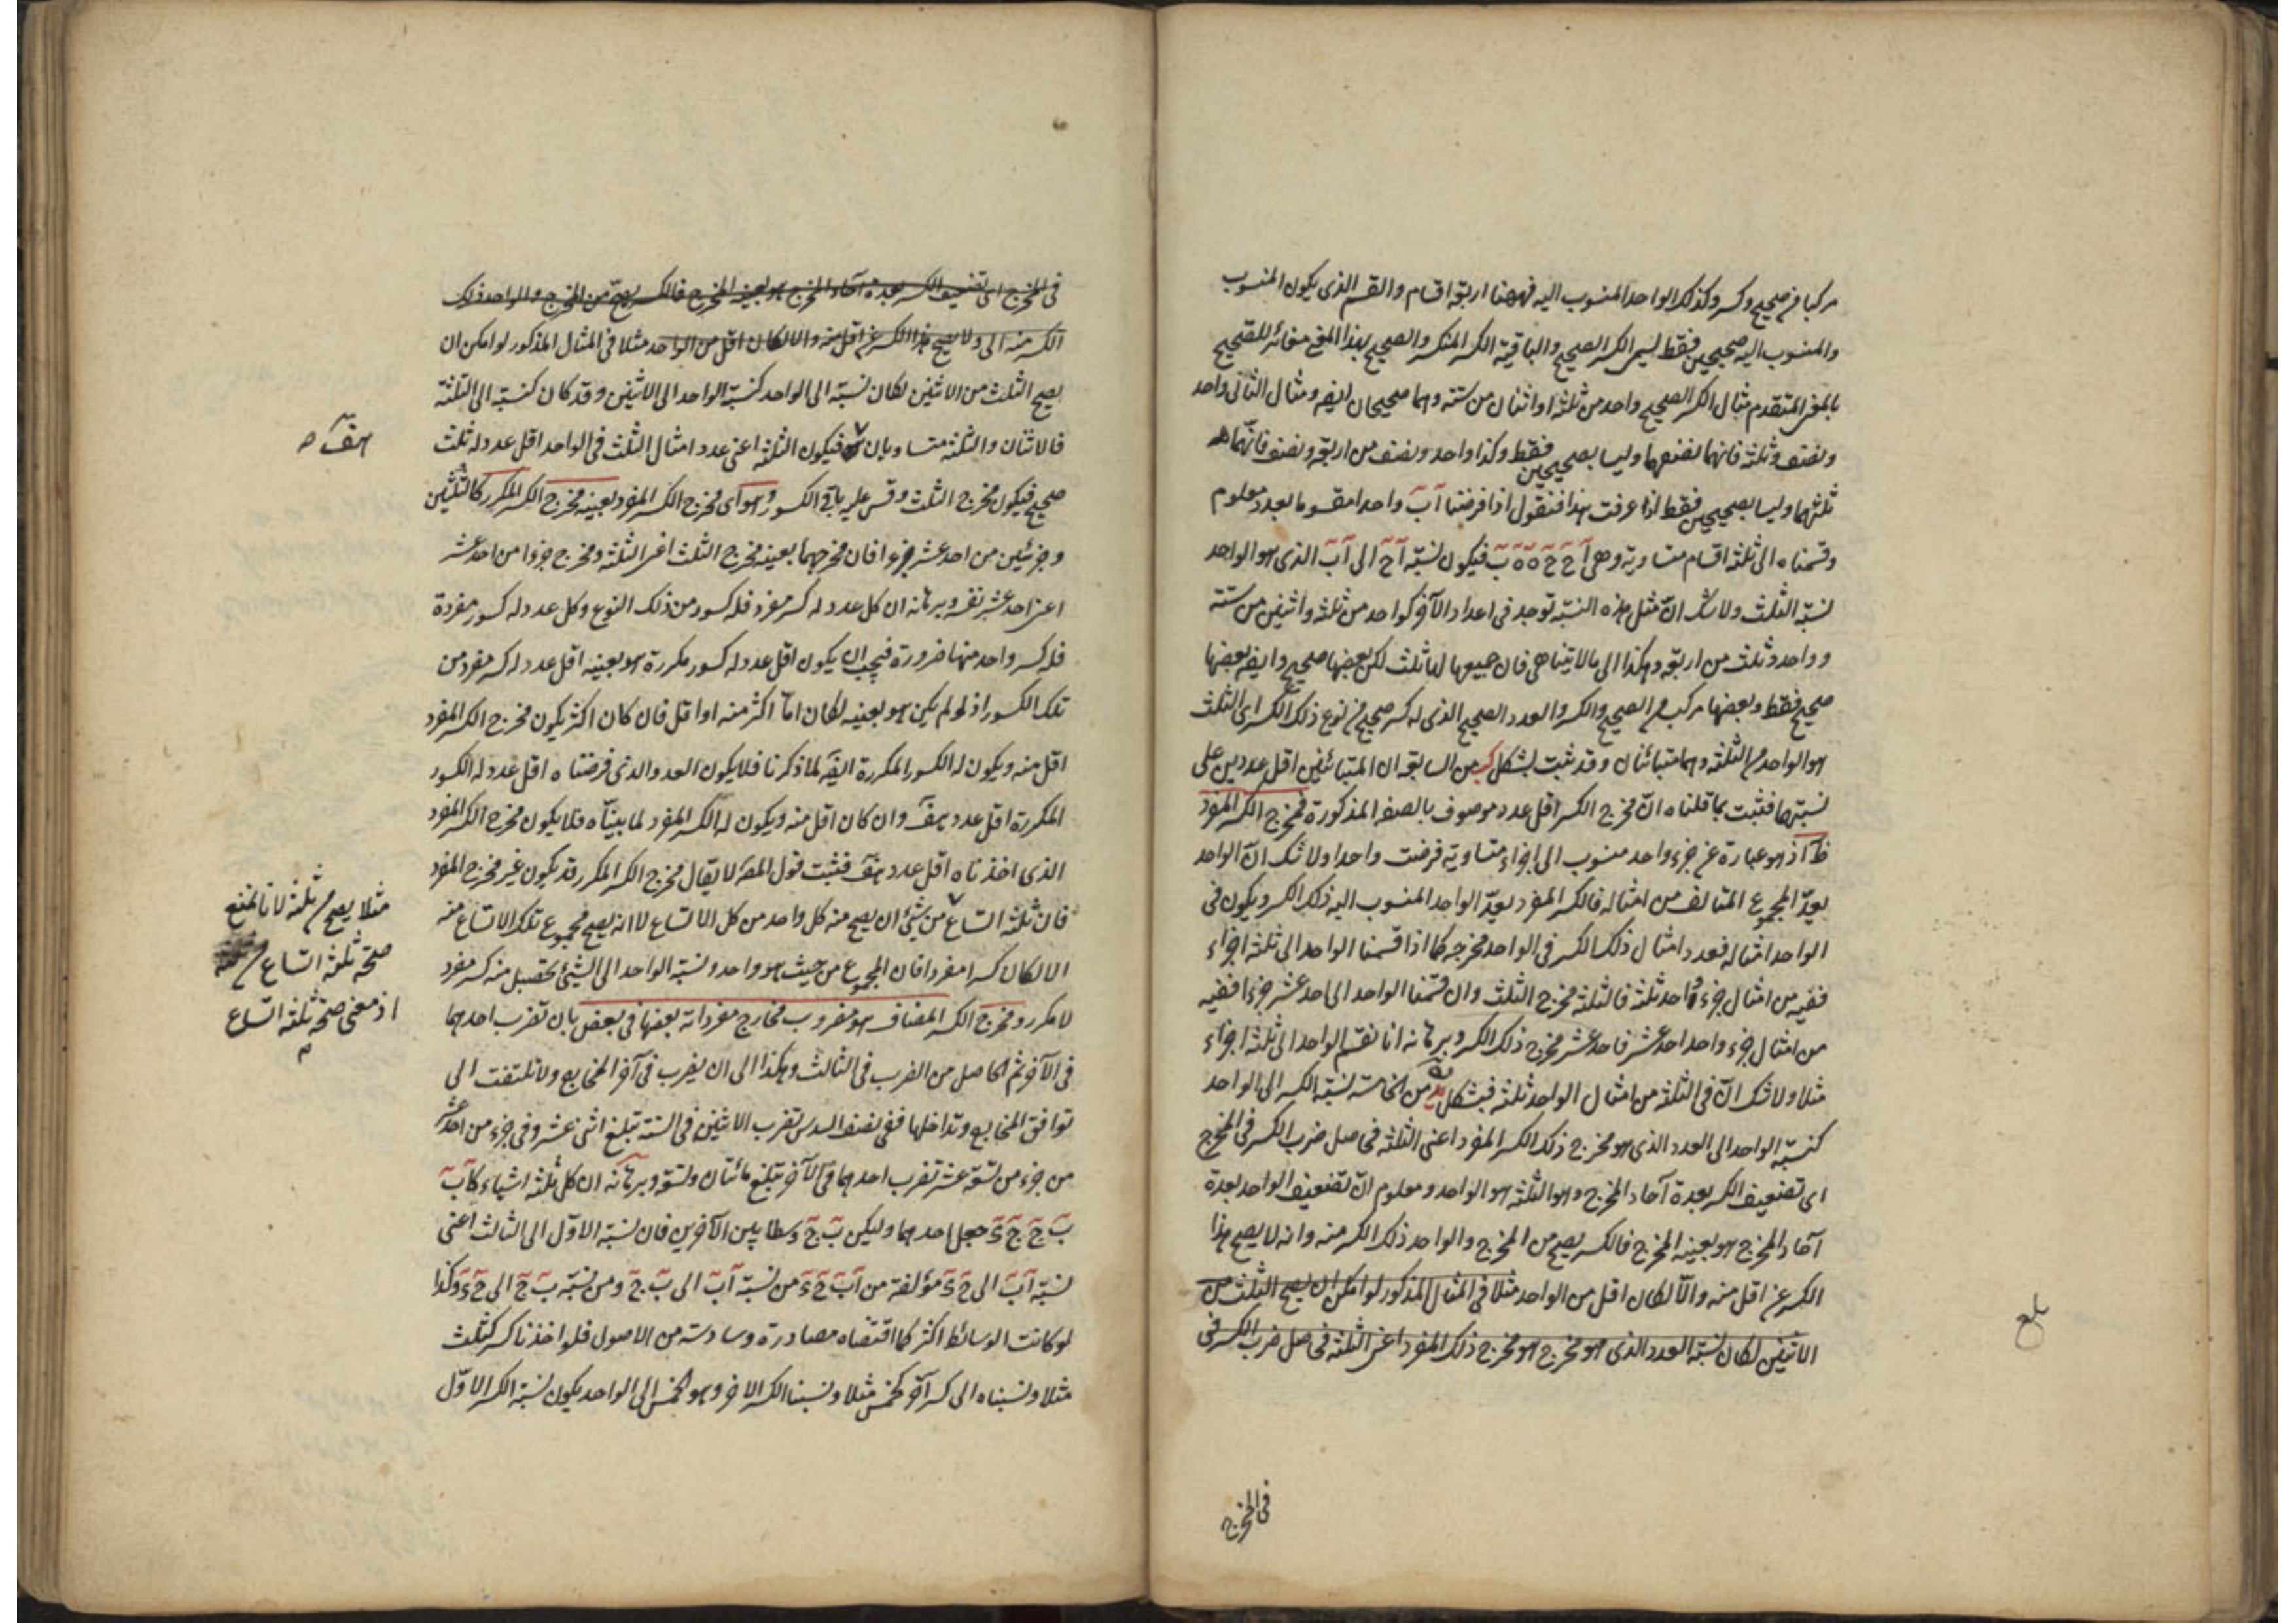 مركبا من صحيح وكسر وكذلك الواحد المنسوب اليه فههنا اربعة اقسام والقسم الذى يكون المنسوب
والمنسوب اليه صحيحين فقط ليسمى الكسر الصحيح والباقية الكسر المنكسر والصحيح بهذا المعنى مغائر للصحيح
بالمعنى المتقدم مثال الكسر الصحيح واحد من ثلثة او اثنان من ستة وهما صحيحان ايضا ومثال الثانى واحد
ونصف وثلثة فانهما نصفهما وليسا بصحيحين فقط وكذا واحد ونصف من اربعة ونصف فانهما
ثلثهما وليسا بصحيحين فقط اذا عرفت هذا فنقول اذا فرضنا آب واحدا مقسوما بعدد معلوم
وقسمناه الى ثلثة اقسام متساوية وهى آح ح ه ه ب فيكون نسبة آح الى آب الذى هو الواحد
نسبة الثلث ولا شك ان مثل هذه النسبة توجد فى اعداد الآخر كواحد من ثلثة واثنين من ستة
وواحد وثلث من اربعة وهكذا الى ما لا يتناهى فان جميعها لها ثلث لكن بعضها صحيح وايضا بعضها
صحيح فقط وبعضها مركب من الصحيح والكسر والعدد الصحيح الذى له كسر صحيح من نوع ذلك الكسر اى الثلث
هو الواحد من الثلثة وهما متبائنان وقد ثبت بشكل كب من السابعة ان المتبائنين اقل عددين على
نسبتهما فثبت بما قلناه ان مخرج الكسر اقل عدد موصوف بالصفة المذكورة فمخرج الكسر المفرد
ظ اذ هو عبارة عن جزء واحد منسوب الى اجزاء متساوية فرضت واحدا ولا شك ان الواحد
يعدّ المجموع المتالف من امثاله فالكسر المفرد يعدّ الواحد المنسوب اليه ذلك الكسر ويكون فى
الواحد امثاله فعدد امثال ذلك الكسر فى الواحد مخرجه كما اذا قسمنا الواحد الى ثلثة اجزاء
ففيه من امثال جزء واحد ثلثة فالثلثة مخرج الثلث وان قسمنا الواحد الى احد عشر جزءا ففيه
من امثال جزء واحد احد عشر فاحد عشر مخرج ذلك الكسر وبرهانه انا نقسم الواحد الى ثلثة اجزاء
مثلا ولا شك ان فى الثلثة من امثال الواحد ثلثة فبشكل من الخامسة نسبة الكسر الى الواحد
كنسبة الواحد الى العدد الذى هو مخرج ذلك الكسر المفرد اعنى الثلثة فحاصل ضرب الكسر فى المخرج
اى تضعيف الكسر بعدة آحاد المخرج وهو الثلثة هو الواحد ومعلوم ان تضعيف الواحد بعدة
آحاد المخرج هو بعينه المخرج فالكسر يصح من المخرج والواحد ذلك الكسر منه وانه لا يصح هذا
الكسر عن اقل منه والا لكان اقل من الواحد مثلا فى المثال المذكور لو امكن ان يصح الثلث من
الاثنين لكان نسبة العدد الذى هو مخرج هو مخرج ذلك المفرد اعنى الثلثة فحاصل ضرب الكسر فى
فى المخرج
بلغ
فى المخرج اى تضعيف الكسر بعدة آحاد المخرج هو بعينه المخرج فالكسر يصح من المخرج والواحد ذلك
الكسر منه الى ولا يصح هذا الكسر عن اقل منه والا لكان اقل من الواحد مثلا فى المثال المذكور لو امكن ان
يصح الثلث من الاثنين لكان نسبة الى الواحد كنسبة الواحد الى الاثنين وقد كان كنسبة الى الثلثة
فالاثنان والثلثة متساويان فيكون الثلثة اعنى عدد امثال الثلث فى الواحد اقل عدد له ثلث
صحيح فيكون مخرج الثلث وقس عليه باقى الكسور وهو اى مخرج الكسر المفرد بعينه مخرج الكسر المكرر كالثلثين
وجزئين من احد عشر جزءا فان مخرجهما بعينه مخرج الثلث اعنى الثلثة ومخرج جزءا من احد عشر
اعنى احد عشر نفسه وبرهانه ان كل عدد له كسر مفرد فله كسور من ذلك النوع وكل عدد له كسور مفردة
فله كسر واحد منها ضرورة فيجب ان يكون اقل عدد له كسور مكررة هو بعينه اقل عدد له كسر مفرد من
تلك الكسور اذ لو لم يكن هو بعينه لكان اما اكثر منه او اقل فان كان اكثر يكون مخرج الكسر المفرد
اقل منه ويكون له الكسور المكررة ايضا لما ذكرنا فلا يكون العدد الذى فرضناه اقل عدد له الكسور
المكررة اقل عدد هف وان كان اقل منه ويكون له الكسر المفرد لما بيناه فلا يكون مخرج الكسر المفرد
الذى اخذناه اقل عدد هف فثبت قول المصه لا يقال مخرج الكسر المكرر قد يكون غير مخرج المفرد
فان ثلثة اتساع من شئ ان يصح منه كل واحد من كل الاتساع لا انه يصح مجموع تلك الاتساع منه
الا لكان كسرا مفردا فان المجموع من حيث هو واحد ونسبة الواحد الى الشئ تحصيل منه كسر مفرد
لا مكرر ومخرج الكسر المضاف هو مضروب مخارج مفرداته بعضها فى بعض بان تضرب احدهما
فى الآخر ثم الحاصل من الضرب فى الثالث وهكذا الى ان يضرب فى آخر المخاريج ولا تلتفت الى
توافق المخاريج وتداخلها ففى نصف السدس تضرب الاثنين فى الستة تبلغ اثنى عشر وفى جزء من احد عشر
من جزء من تسعة عشر تضرب احدهما فى الآخر تبلغ مائتان وتسعة وبرهانه ان كل ثلثة اشياء كآب
ب ج ج ء جعل احدهما وليكن ب ج وسطا بين الآخرين فان نسبة الاول الى الثالث اعنى
نسبة آب الى ج ء مؤلفة من آب ج ء من نسبة آب الى ب ج ومن نسبة ب ج الى ج ء وكذا
لو كانت الوسائط اكثر كما اقتضاه مصادرة وسادسة من الاصول فلو اخذنا كسر كثلث
مثلا ونسبناه الى كسر آخر كخمس مثلا ونسبنا الكسر الآخر وهو الخمس الى الواحد يكون نسبة الكسر الاول
مثلا يصح من ثلثة لانا نمنع
صحة ثلثة اتساع
اذ معنى صحة ثلثة اتساع